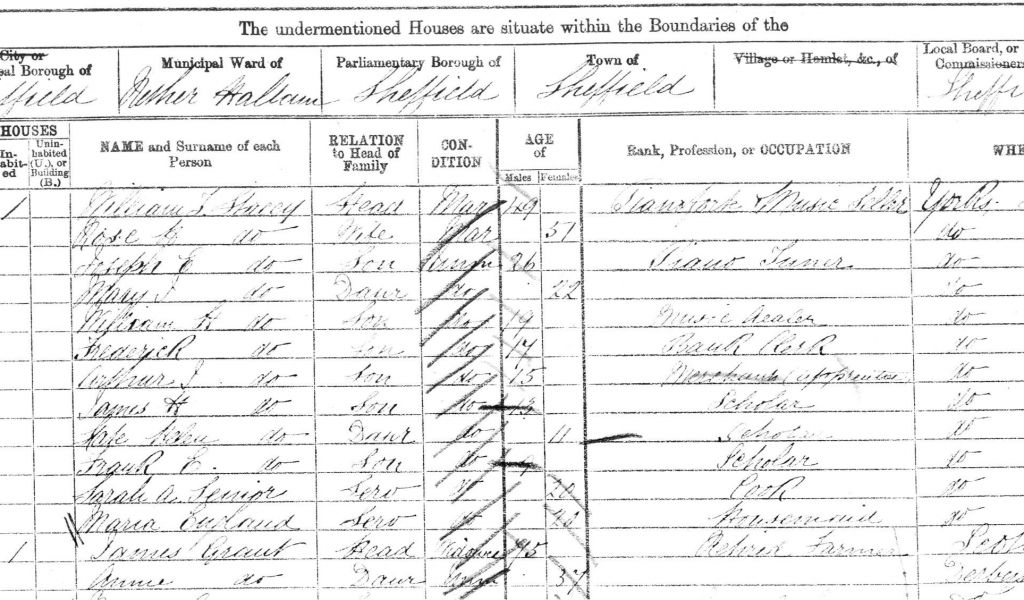 The undermentioned Houses are situate within the Boundaries of the
City or
Borough of Municipal Ward of Parliamentary Borough of Town of Village or Hamlet, &c., of Local Board, or
Commissioners
Nether Hallam Sheffield Sheffield
HOUSES
In-habit-ed Unin-habited (U.), or Building (B.) NAME and Surname of each Person RELATION to Head of Family CON-DITION AGE of Males Females Rank, Profession, or OCCUPATION WHE
1 William Head Mar 49 Music Seller Yorks
Rose do Wife Mar 51 do
Joseph E do Son 26 Piano Tuner do
Mary J do Daur do 22 do
William H do Son do 19 Music dealer do
Frederick do Son do 17 Bank Clerk do
Arthur J do Son do 15 do
James H do Son do 13 Scholar do
Kate Helen do Daur do 11 Scholar do
Frank E. do Son do Scholar do
Sarah A Senior Serv do Cook do
Maria England Serv do Housemaid do
1 James Grant Head Retired Farmer
Annie do Daur Unm 37